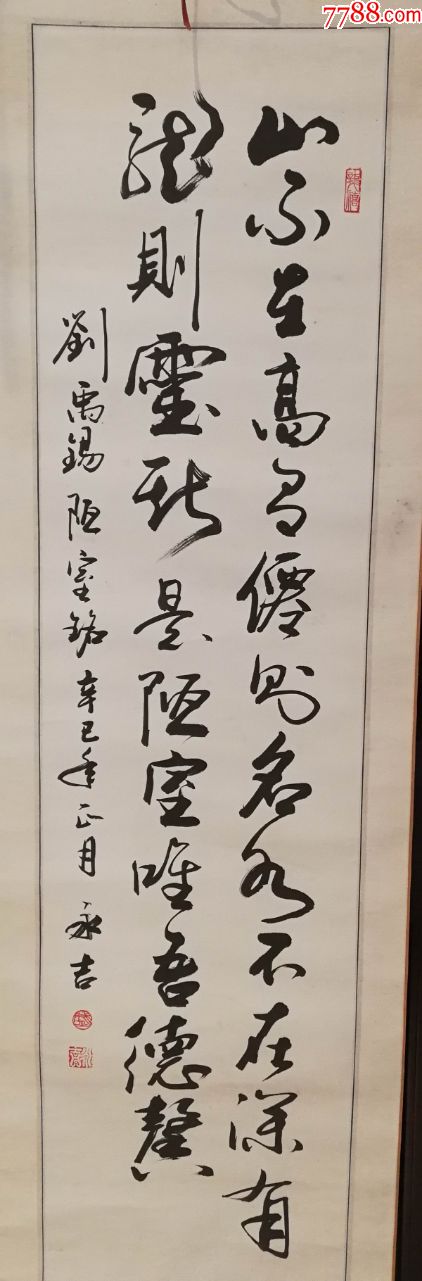 山不在高有僊则名水不在深有
龍則靈斯是陋室唯吾德馨
劉禹錫陋室銘辛巳年正月永吉
7788.com